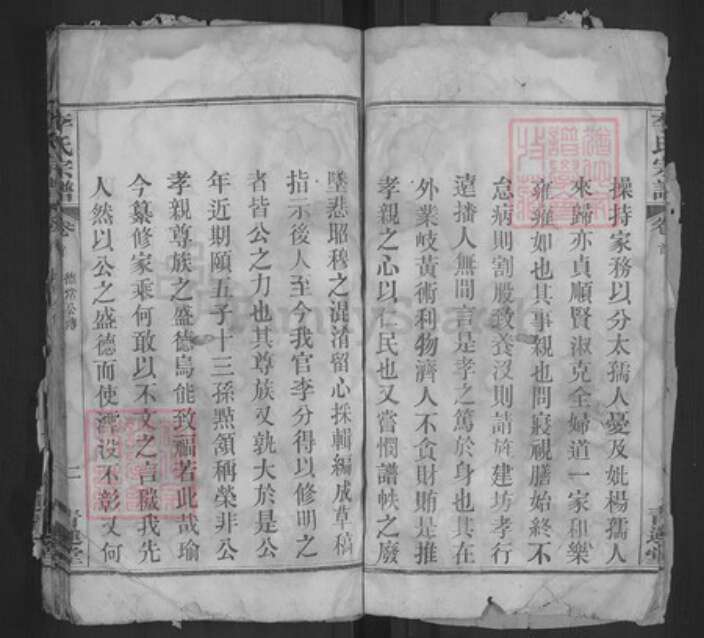 操持家務以分太孺人憂及妣楊孺人
來歸亦貞順賢淑克全婦道一家和樂
雍雍如也其事親也問寢視膳始終不
怠病則割股致養沒則請旌建坊孝行
遠播人無間言是孝之篤於身也其在
外業岐黃術利物濟人不貪財賄是推
孝親之心以仁民也又嘗憫譜帙之廢
墜悲昭穆之混淆留心採輯編成草稿
指示後人至今我官李分得以修明之
者皆公之力也其尊族又孰大於是公
年近期頤五子十三孫點頷稱榮非公
孝親尊族之盛德烏能致福若此哉瑜
今纂修家乘何敢以不文之言穢我先
人然以公之盛德而使湮沒不彰又何
李氏宗譜
卷首
二